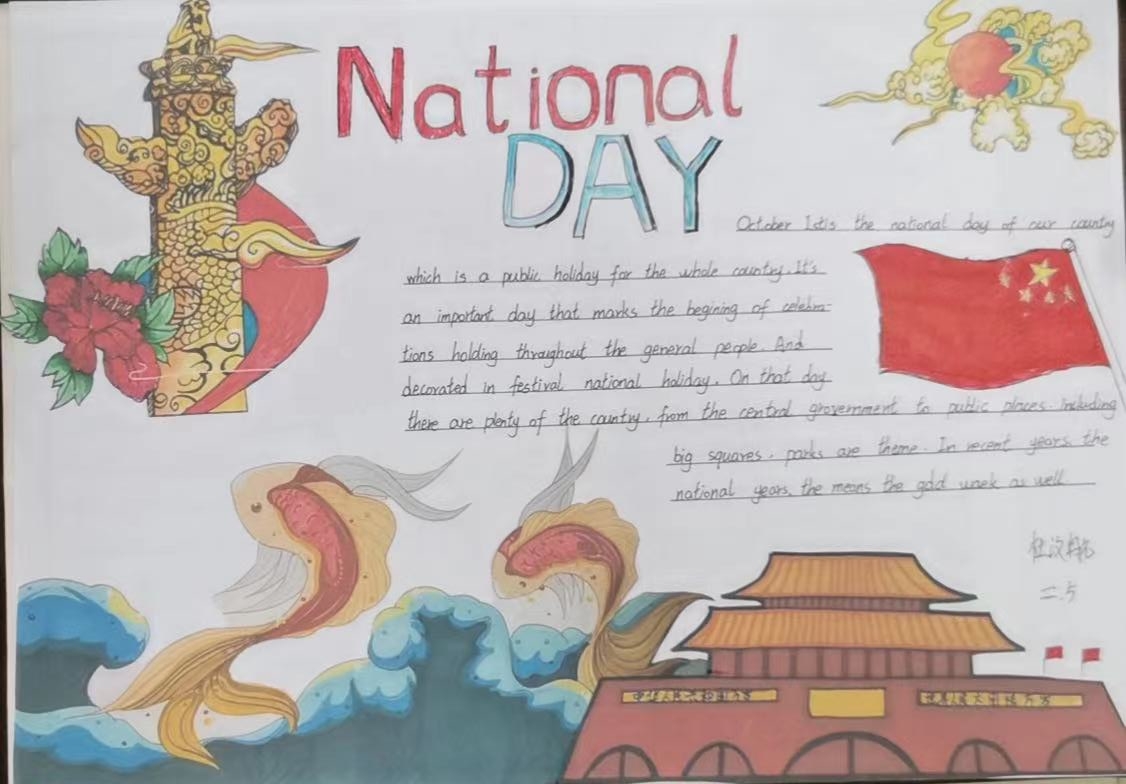 National
DAY
October 1stis the national day of our country
which is a public holiday for the whole country. It's
an important day that marks the begining of celebra-
tions holding throughout the general people. And
decorated in festival national holiday. On that day
there are plenty of the country, from the central grovernment to public places. Including
big squares, parks are theme. In recent years, the
national years, the means the gold week as well
二.5
中华人民共和国万岁
世界人民大团结万岁